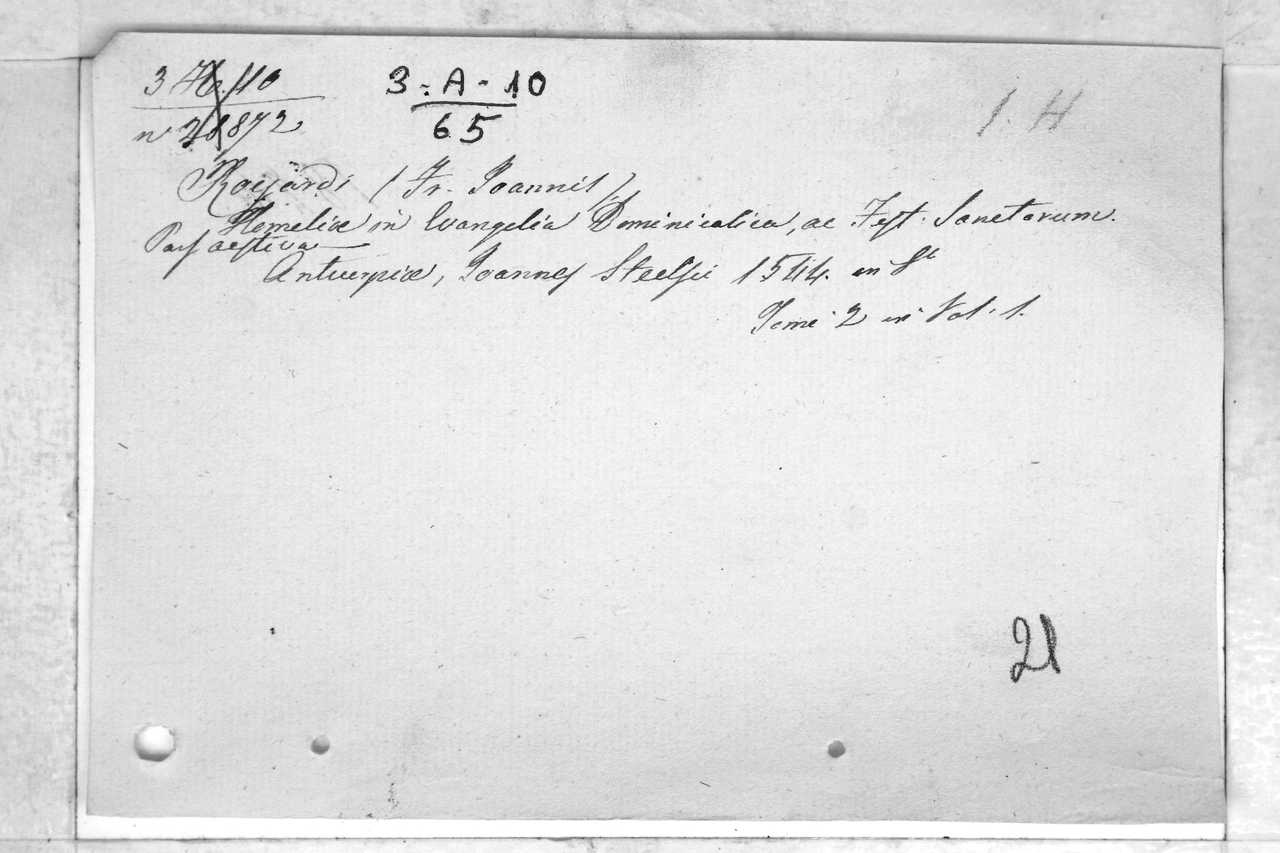 3 10
3-A-10
nº 21872
65
1. H
Royardi (Fr. Joannis)
Homeliæ in Evangelia Dominicalica, ac Fest. Sanctorum.
Pars aestiva—
Antuerpiæ, Joannes Steelsii 1544. in 8º
Tomi 2 in Vol. 1.
21